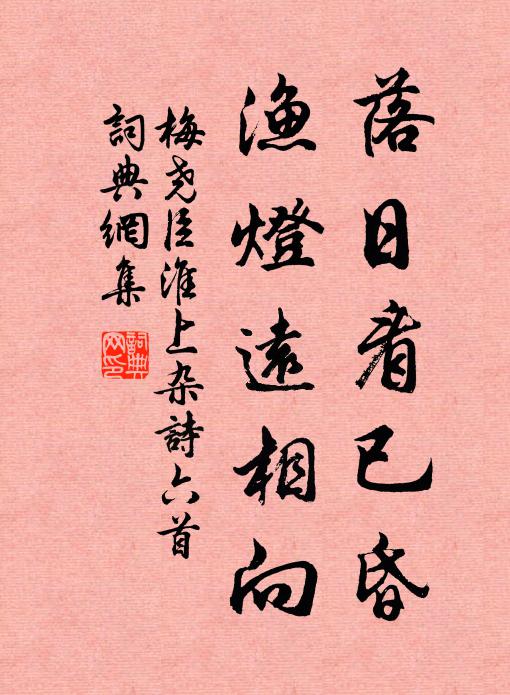 落日看已昏
漁燈遠相向
梅尧臣淮上杂詩六首
詞典網集
詞典网印